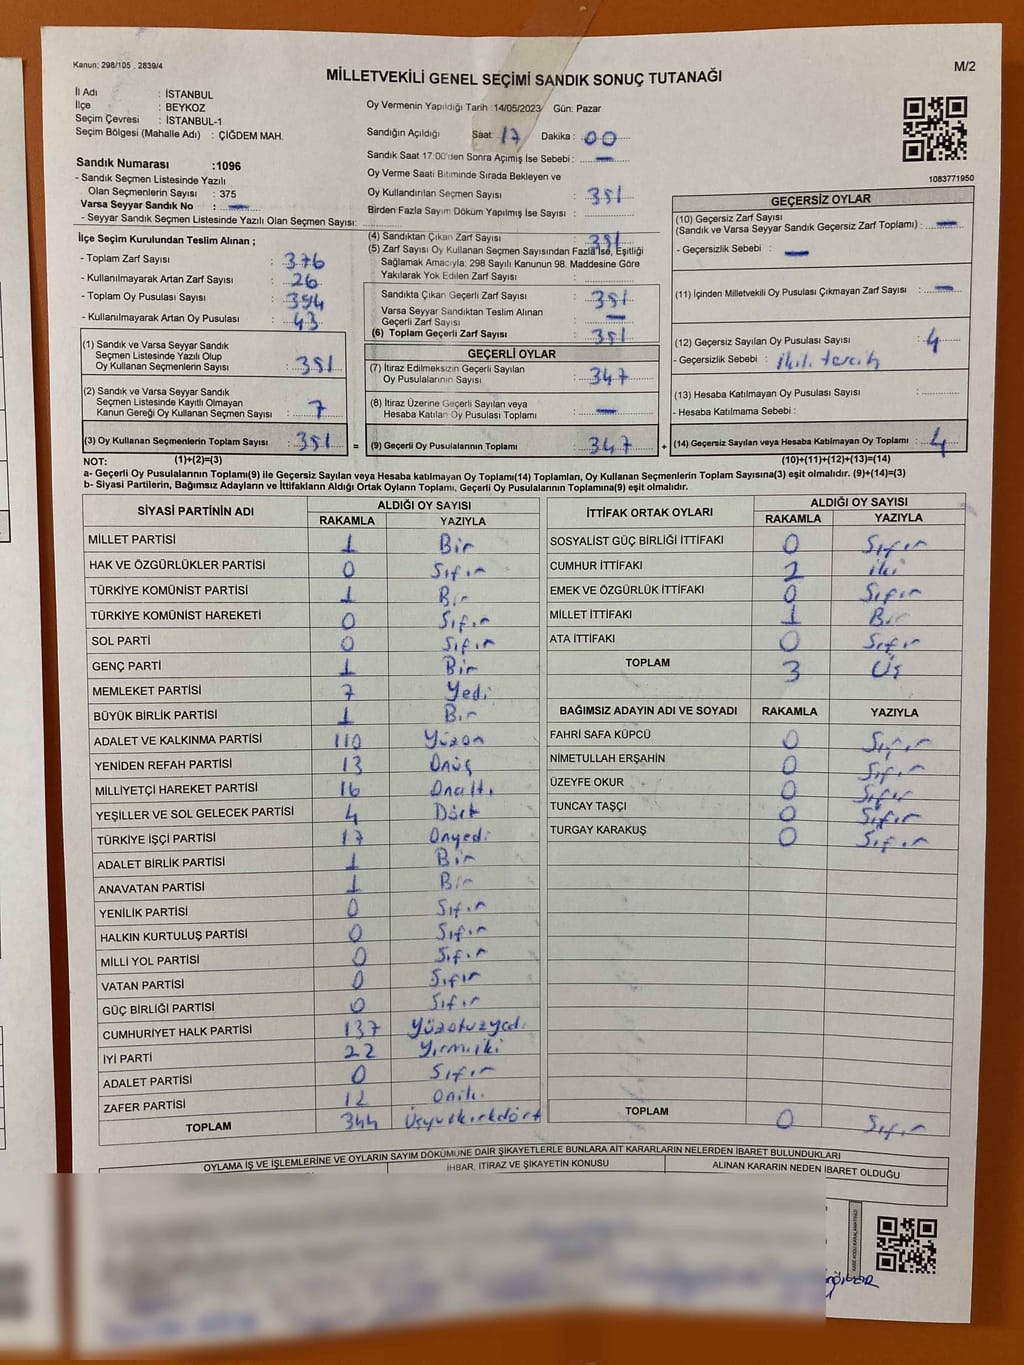 Kanun: 298/105 , 2839/4
M/2
MİLLETVEKİLİ GENEL SEÇİMİ SANDIK SONUÇ TUTANAĞI
İl Adı : İSTANBUL
İlçe : BEYKOZ
Seçim Çevresi : İSTANBUL-1
Seçim Bölgesi (Mahalle Adı) : ÇİĞDEM MAH.
Sandık Numarası :1096
- Sandık Seçmen Listesinde Yazılı
Olan Seçmenlerin Sayısı : 375
Varsa Seyyar Sandık No : —
- Seyyar Sandık Seçmen Listesinde Yazılı Olan Seçmen Sayısı:
Oy Vermenin Yapıldığı Tarih :14/05/2023 Gün: Pazar
Sandığın Açıldığı Saat: 17 Dakika : 00
Sandık Saat 17:00'den Sonra Açımış İse Sebebi : —
Oy Verme Saati Bitiminde Sırada Bekleyen ve
Oy Kullandırılan Seçmen Sayısı : 351
Birden Fazla Sayım Döküm Yapılmış İse Sayısı :
1083771950
İlçe Seçim Kurulundan Teslim Alınan ;
- Toplam Zarf Sayısı : 376
- Kullanılmayarak Artan Zarf Sayısı : 26
- Toplam Oy Pusulası Sayısı : 394
- Kullanılmayarak Artan Oy Pusulası : 43
(1) Sandık ve Varsa Seyyar Sandık
Seçmen Listesinde Yazılı Olup
Oy Kullanan Seçmenlerin Sayısı : 351
(2) Sandık ve Varsa Seyyar Sandık
Seçmen Listesinde Kayıtlı Olmayan
Kanun Gereği Oy Kullanan Seçmen Sayısı : 7
(3) Oy Kullanan Seçmenlerin Toplam Sayısı : 351 =
(4) Sandıktan Çıkan Zarf Sayısı : 351
(5) Zarf Sayısı Oy Kullanan Seçmen Sayısından Fazla İse, Eşitliği
Sağlamak Amacıyla; 298 Sayılı Kanunun 98. Maddesine Göre
Yakılarak Yok Edilen Zarf Sayısı :
Sandıkta Çıkan Geçerli Zarf Sayısı : 351
Varsa Seyyar Sandıktan Teslim Alınan
Geçerli Zarf Sayısı : —
(6) Toplam Geçerli Zarf Sayısı : 351
GEÇERLİ OYLAR
(7) İtiraz Edilmeksizin Geçerli Sayılan
Oy Pusulalarının Sayısı : 347
(8) İtiraz Üzerine Geçerli Sayılan veya
Hesaba Katılan Oy Pusulası Toplamı : —
(9) Geçerli Oy Pusulalarının Toplamı : 347 +
GEÇERSİZ OYLAR
(10) Geçersiz Zarf Sayısı
(Sandık ve Varsa Seyyar Sandık Geçersiz Zarf Toplamı) : —
- Geçersizlik Sebebi : —
(11) İçinden Milletvekili Oy Pusulası Çıkmayan Zarf Sayısı : —
(12) Geçersiz Sayılan Oy Pusulası Sayısı : 4
- Geçersizlik Sebebi : ikili tercih
(13) Hesaba Katılmayan Oy Pusulası Sayısı :
- Hesaba Katılmama Sebebi :
(14) Geçersiz Sayılan veya Hesaba Katılmayan Oy Toplamı : 4
NOT: (1)+(2)=(3) (10)+(11)+(12)+(13)=(14)
a- Geçerli Oy Pusulalarının Toplamı(9) ile Geçersiz Sayılan veya Hesaba katılmayan Oy Toplamı(14) Toplamları, Oy Kullanan Seçmenlerin Toplam Sayısına(3) eşit olmalıdır. (9)+(14)=(3)
b- Siyasi Partilerin, Bağımsız Adayların ve İttifakların Aldığı Ortak Oyların Toplamı, Geçerli Oy Pusulalarının Toplamına(9) eşit olmalıdır.
SİYASİ PARTİNİN ADI ALDIĞI OY SAYISI
RAKAMLA YAZIYLA
MİLLET PARTİSİ 1 Bir
HAK VE ÖZGÜRLÜKLER PARTİSİ 0 Sıfır
TÜRKİYE KOMÜNİST PARTİSİ 1 Bir
TÜRKİYE KOMÜNİST HAREKETİ 0 Sıfır
SOL PARTİ 0 Sıfır
GENÇ PARTİ 1 Bir
MEMLEKET PARTİSİ 7 Yedi
BÜYÜK BİRLİK PARTİSİ 1 Bir
ADALET VE KALKINMA PARTİSİ 110 Yüzon
YENİDEN REFAH PARTİSİ 13 Onüç
MİLLİYETÇİ HAREKET PARTİSİ 16 Onaltı
YEŞİLLER VE SOL GELECEK PARTİSİ 4 Dört
TÜRKİYE İŞÇİ PARTİSİ 17 Onyedi
ADALET BİRLİK PARTİSİ 1 Bir
ANAVATAN PARTİSİ 1 Bir
YENİLİK PARTİSİ 0 Sıfır
HALKIN KURTULUŞ PARTİSİ 0 Sıfır
MİLLİ YOL PARTİSİ 0 Sıfır
VATAN PARTİSİ 0 Sıfır
GÜÇ BİRLİĞİ PARTİSİ 0 Sıfır
CUMHURİYET HALK PARTİSİ 137 Yüzotuzyedi
İYİ PARTİ 22 Yirmiiki
ADALET PARTİSİ 0 Sıfır
ZAFER PARTİSİ 12 Oniki
TOPLAM 344 Üçyüzkırkdört
İTTİFAK ORTAK OYLARI ALDIĞI OY SAYISI
RAKAMLA YAZIYLA
SOSYALİST GÜÇ BİRLİĞİ İTTİFAKI 0 Sıfır
CUMHUR İTTİFAKI 2 iki
EMEK VE ÖZGÜRLÜK İTTİFAKI 0 Sıfır
MİLLET İTTİFAKI 1 Bir
ATA İTTİFAKI 0 Sıfır
TOPLAM 3 Üç
BAĞIMSIZ ADAYIN ADI VE SOYADI RAKAMLA YAZIYLA
FAHRİ SAFA KÜPCÜ 0 Sıfır
NİMETULLAH ERŞAHİN 0 Sıfır
ÜZEYFE OKUR 0 Sıfır
TUNCAY TAŞÇI 0 Sıfır
TURGAY KARAKUŞ 0 Sıfır
TOPLAM 0 Sıfır
OYLAMA İŞ VE İŞLEMLERİNE VE OYLARIN SAYIM DÖKÜMÜNE DAİR ŞİKAYETLERLE BUNLARA AİT KARARLARIN NELERDEN İBARET BULUNDUKLARI
İHBAR, İTİRAZ VE ŞİKAYETİN KONUSU
ALINAN KARARIN NEDEN İBARET OLDUĞU